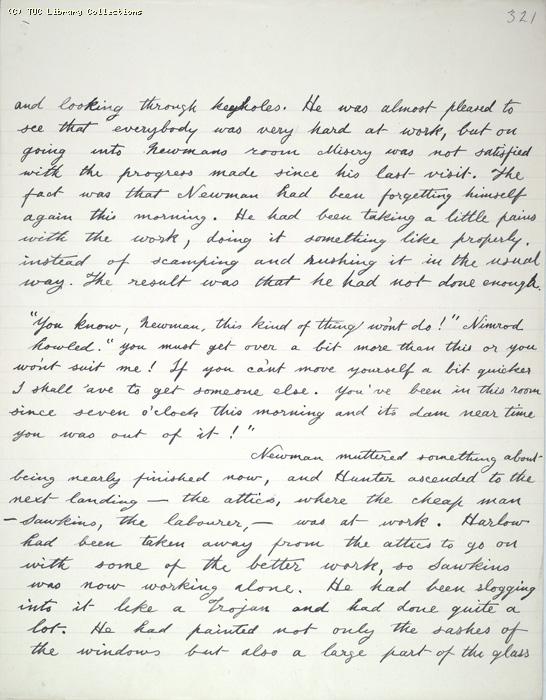 (C) TUC Library Collections
321
and looking through keyholes. He was almost pleased to
see that everybody was very hard at work, but on
going into Newmans room Misery was not satisfied
with the progress made since his last visit. The
fact was that Newman had been forgetting himself
again this morning. He had been taking a little pains
with the work, doing it something like properly,
instead of scamping and rushing it in the usual
way. The result was that he had not done enough.
"You know, Newman, this kind of thing won't do!" Nimrod
howled. "you must get over a bit more than this or you
won't suit me! If you can't move yourself a bit quicker
I shall 'ave to get someone else. You've been in this room
since seven o'clock this morning and its dam near time
you was out of it!"
Newman muttered something about
being nearly finished now, and Hunter ascended to the
next landing — the attics, where the cheap man
– Sawkins, the labourer, – was at work. Harlow
had been taken away from the attics to go on
with some of the better work, so Sawkins
was now working alone. He had been slogging
into it like a Trojan and had done quite a
lot. He had painted not only the sashes of
the windows but also a large part of the glass